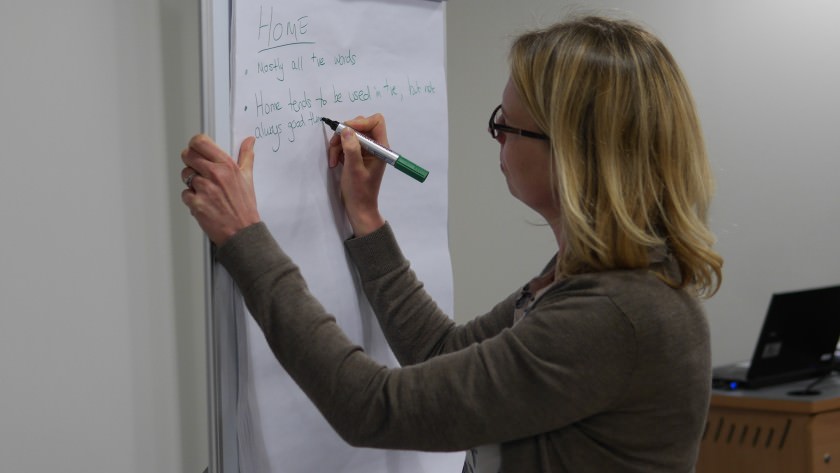 HOME
• Mostly all +ve words
• Home tends to be used in +ve, but not
always good